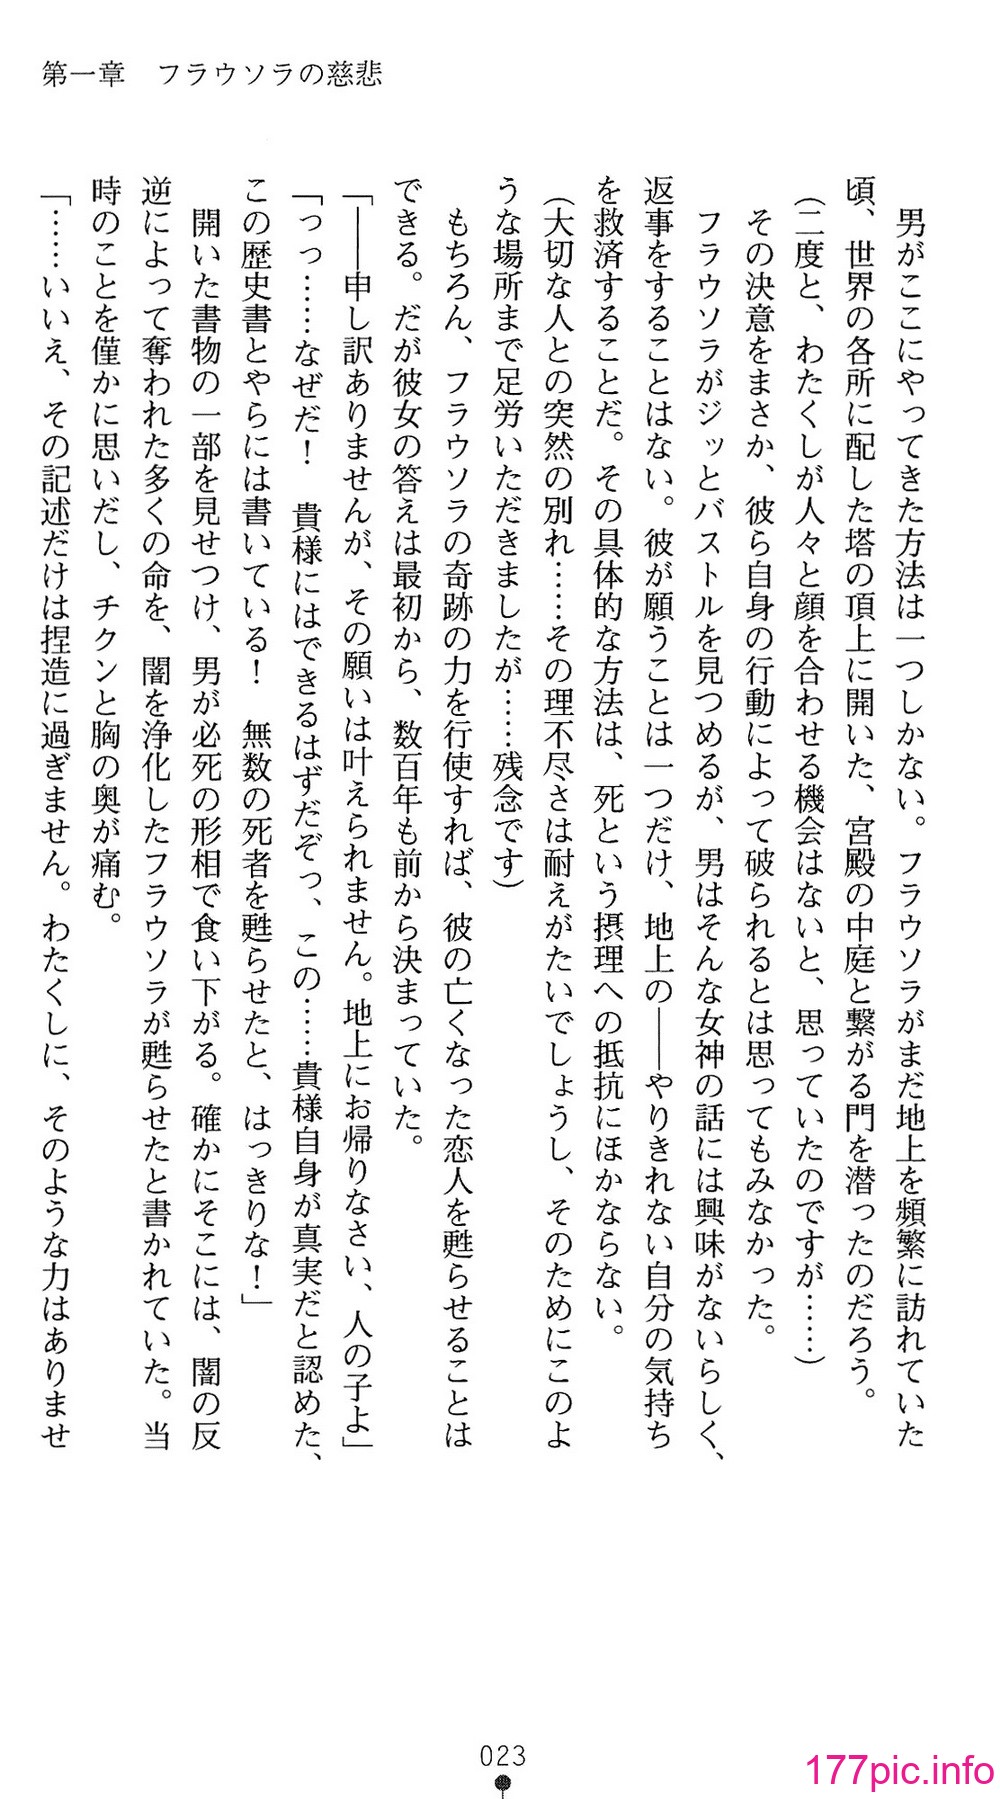 第一章　フラウソラの慈悲
　男がここにやってきた方法は一つしかない。フラウソラがまだ地上を頻繁に訪れていた
頃、世界の各所に配した塔の頂上に開いた、宮殿の中庭と繋がる門を潜ったのだろう。
（二度と、わたくしが人々と顔を合わせる機会はないと、思っていたのですが……）
　その決意をまさか、彼ら自身の行動によって破られるとは思ってもみなかった。
　フラウソラがジッとバストルを見つめるが、男はそんな女神の話には興味がないらしく、
返事をすることはない。彼が願うことは一つだけ、地上の――やりきれない自分の気持ち
を救済することだ。その具体的な方法は、死という摂理への抵抗にほかならない。
（大切な人との突然の別れ……その理不尽さは耐えがたいでしょうし、そのためにこのよ
うな場所まで足労いただきましたが……残念です）
　もちろん、フラウソラの奇跡の力を行使すれば、彼の亡くなった恋人を甦らせることは
できる。だが彼女の答えは最初から、数百年も前から決まっていた。
「――申し訳ありませんが、その願いは叶えられません。地上にお帰りなさい、人の子よ」
「っっ……なぜだ！　貴様にはできるはずだぞっ、この……貴様自身が真実だと認めた、
この歴史書とやらには書いている！　無数の死者を甦らせたと、はっきりな！」
　開いた書物の一部を見せつけ、男が必死の形相で食い下がる。確かにそこには、闇の反
逆によって奪われた多くの命を、闇を浄化したフラウソラが甦らせたと書かれていた。当
時のことを僅かに思いだし、チクンと胸の奥が痛む。
「……いいえ、その記述だけは捏造に過ぎません。わたくしに、そのような力はありませ
023
177pic.info